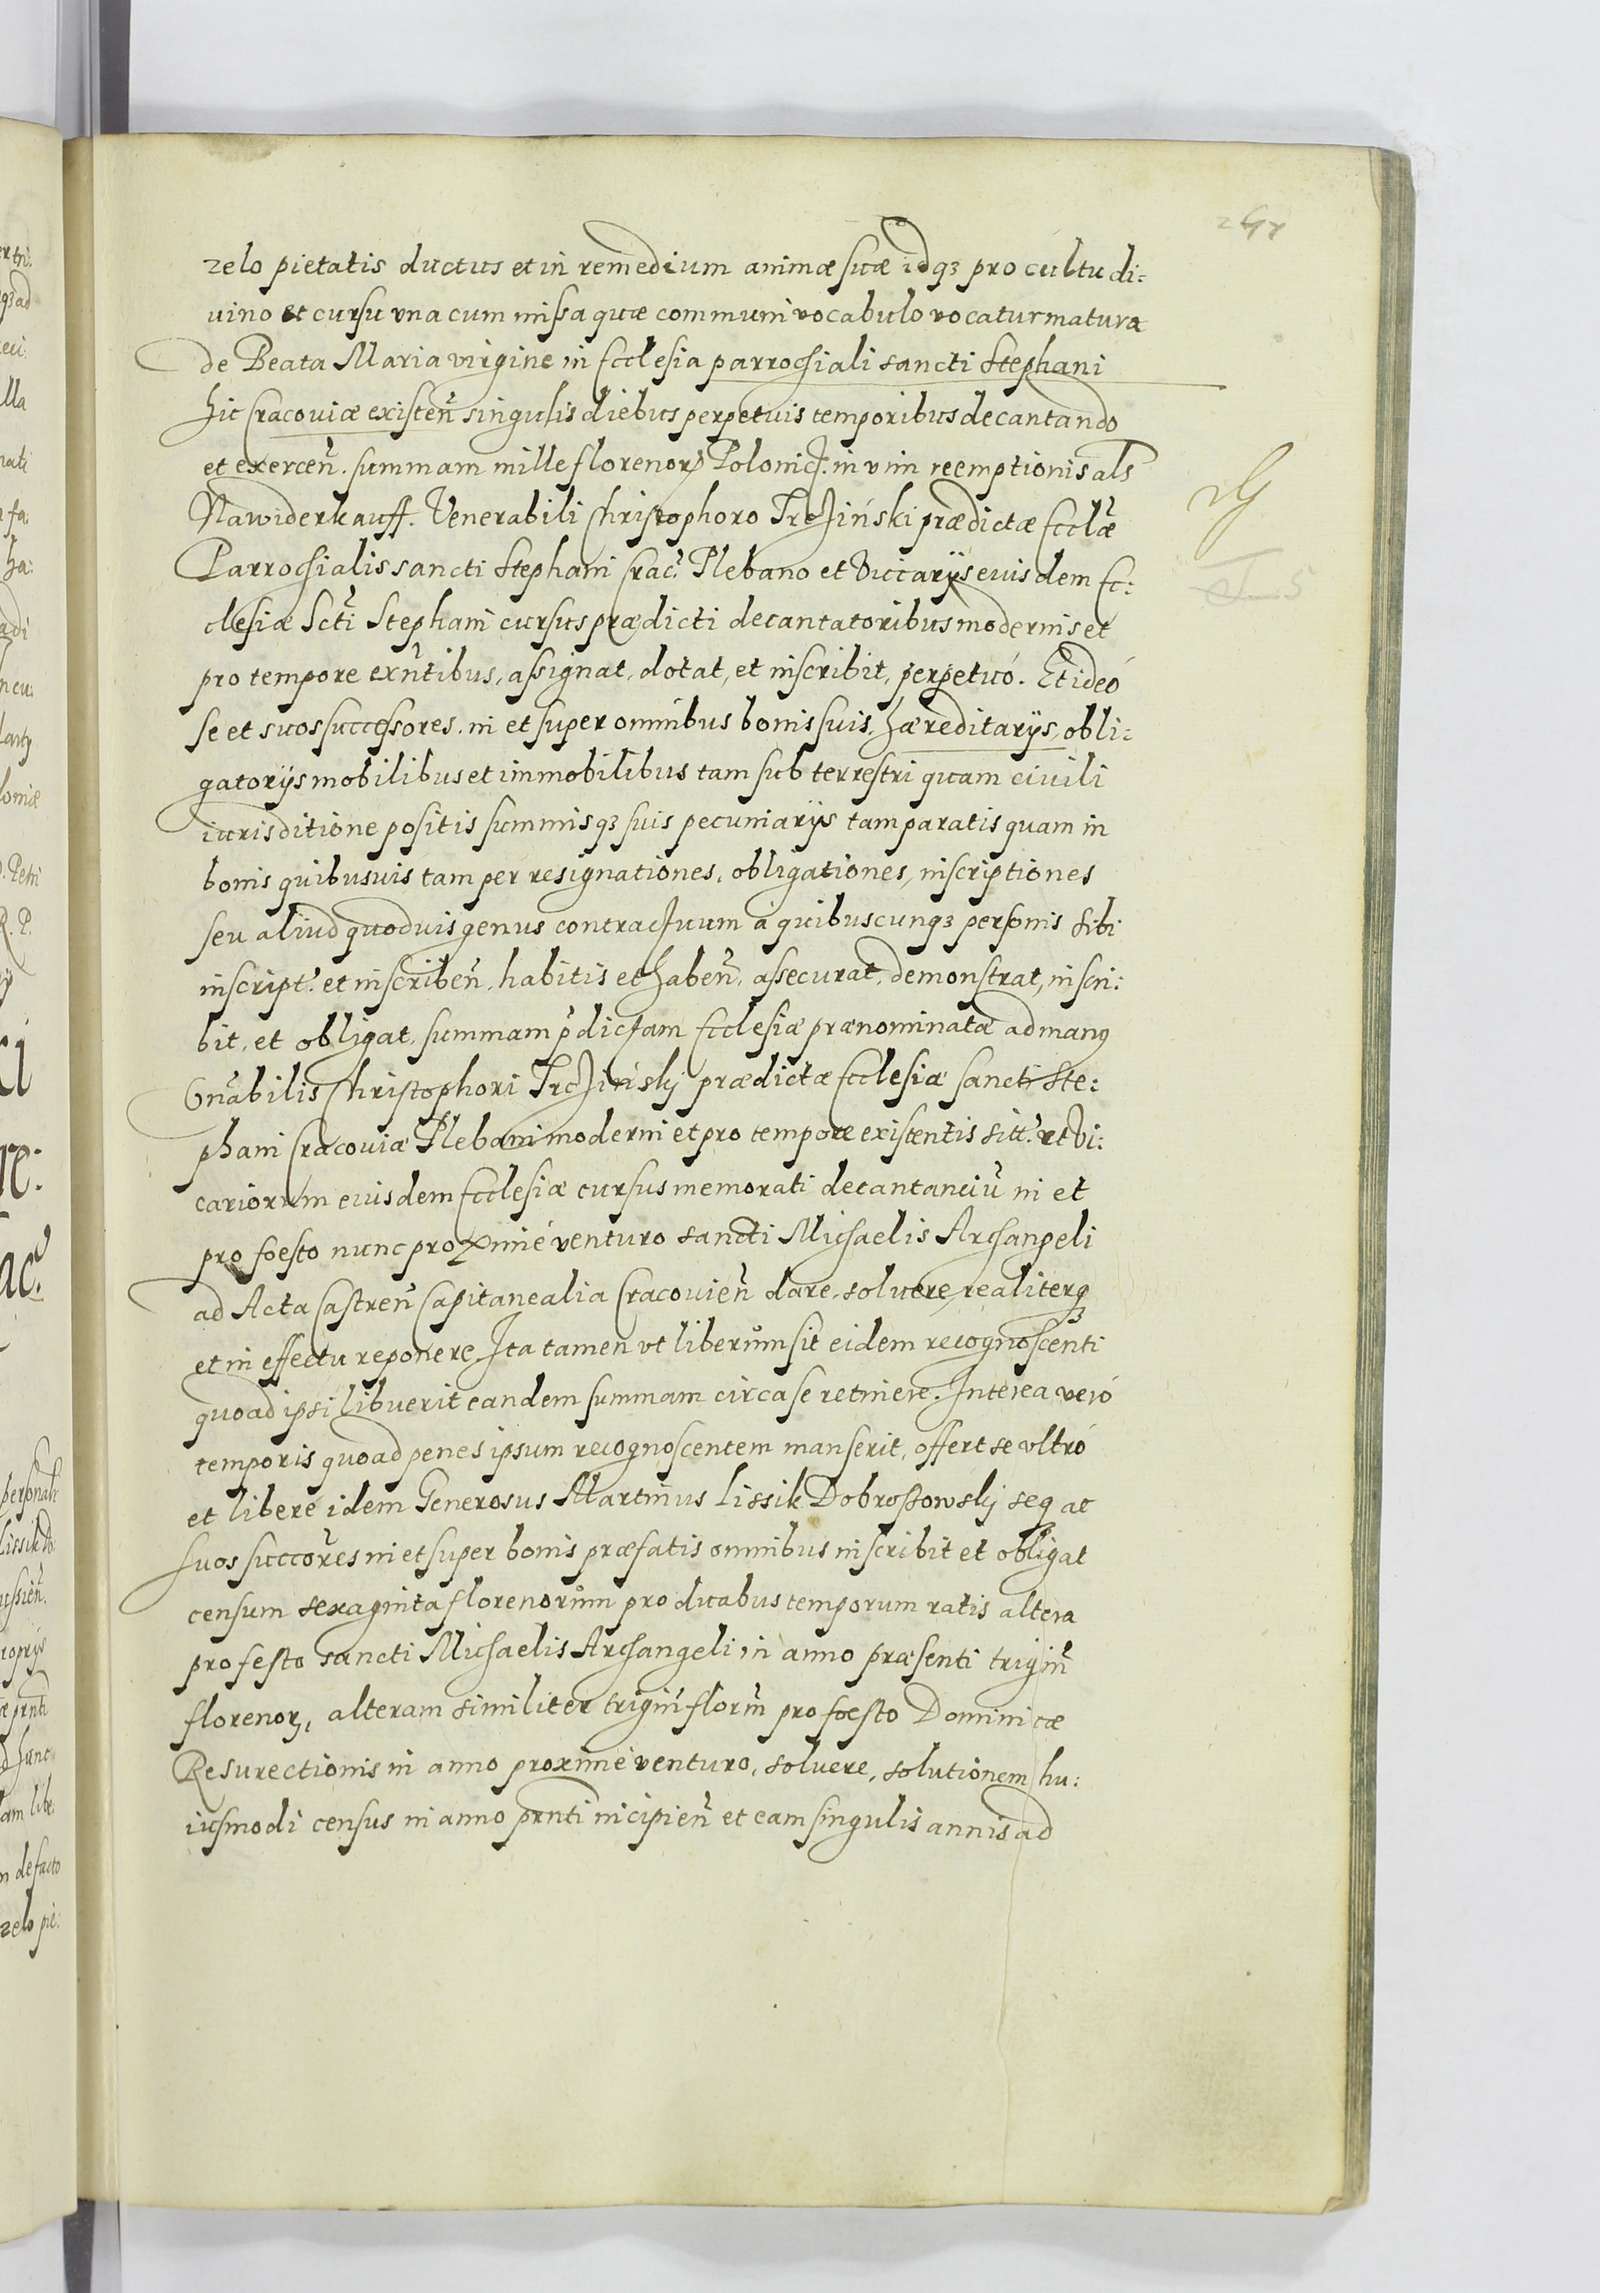 zelo pietatis ductus et in remedium animæ suæ idq3 pro cultu di:
uino et cursu vna cum missa quæ communi vocabulo vocatur matura
de Beata Maria virgine in Ecclesia parrochiali sancti Stephani
hic Cracouiæ existeñ singulis diebus perpetuis temporibus decantando
et exerceñ. summam mille florenorꝝ Polonict. in vim reemptionis als
Nawiderkauff. Venerabili Christophoro Trcziński prædictæ Eccl̃æ
Parrochialis sancti Stephani Crac. Plebano et Viccarijs euisdem Ec:
clesiæ Scti Stephani cursus prædicti decantatoribus modernis et
pro tempore exñtibus, assignat, dotat, et inscribit, perpetuó. Et ideó
se et suos successores. in et super omnibus bonis suis. hæreditarijs, obli:
gatorijs mobilibus et immobilibus tam sub terrestri quam ciuili
iurisditione positis summisq3 suis pecuniarijs tam paratis quam in
bonis quibusuis tam per resignationes, obligationes, inscriptiones
seu aliud quoduis genus contractuum á quibuscunq3 personis sibi
inscript. et inscribeñ. habitis et habeñ. assecurat, demonstrat, inscri:
bit, et obligat, summam p̃dictam Ecclesiæ prænominatæ ad man9
Vñabilis Christophori Trczińskj prædictæ Ecclesiæ sancti Ste:
phani Cracouiæ Plebani moderni et pro tempore existentis sitt. et Vi:
cariorum euisdem Ecclesiæ cursus memorati decantanciũ in et
pro foesto nunc proximé venturo sancti Michaelis Archangeli
ad Acta Castreñ Capitanealia Cracouieñ dare, soluere realiterq3
et in effectu reponere Ita tamen vt liberům sit eidem recognoscenti
quoad ipsi libuerit eandem summam circa se retinere. Interea veró
temporis quoad penes ipsum recognoscentem manserit, offert se vltró
et libere idem Generosus Martinus Lissik Dobrossowskj seq ac
suos succõres in et super bonis præfatis omnibus inscribit et obligat
censum sexaginta florenorům pro duabus temporum ratis altera
pro festo sancti Michaelis Archangeli in anno præsenti trigiñ
florenorꝝ, alteram similiter trigiñ florñ pro foesto Dominicæ
Resurectionis in anno proximé venturo, soluere, solutionem hu:
iusmodi census in anno prñti incipieñ et eam singulis annis ad